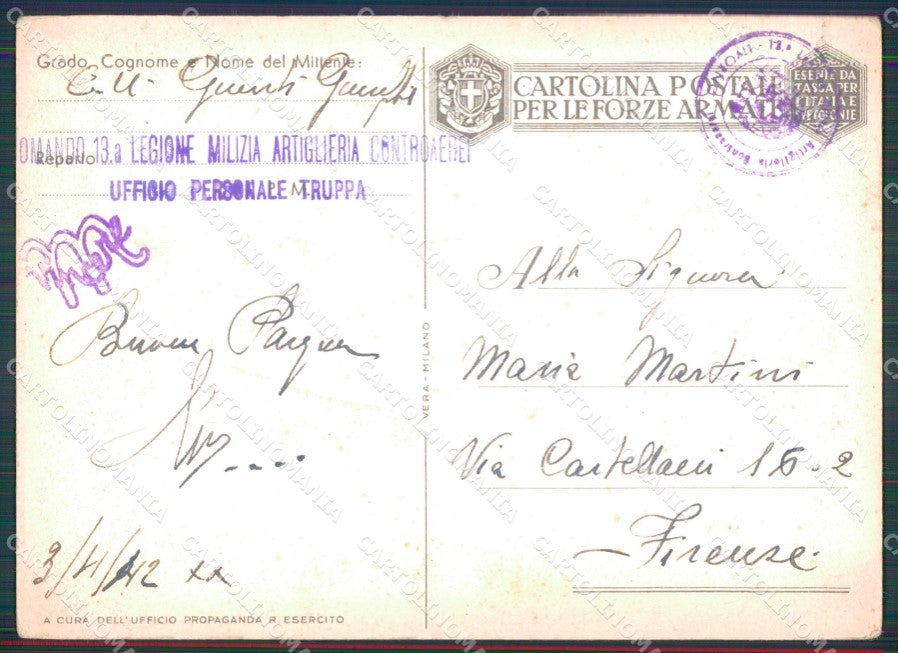 Grado, Cognome e Nome del Mittente:
Reparto
OMANDO 13.a LEGIONE MILIZIA ARTIGLIERIA CONTROAEREI
P. M.
UFFICIO PERSONALE TRUPPA
Buona Pasqua
3/4/42 xx
A CURA DELL'UFFICIO PROPAGANDA R. ESERCITO
VERA - MILANO
CARTOLINA POSTALE
PER LE FORZE ARMATE
ESENTE DA
TASSA PER
L'ITALIA E
Alla Signora
Maria Martini
Via Castellacci 16.2
Firenze
CARTOLINOMANIA